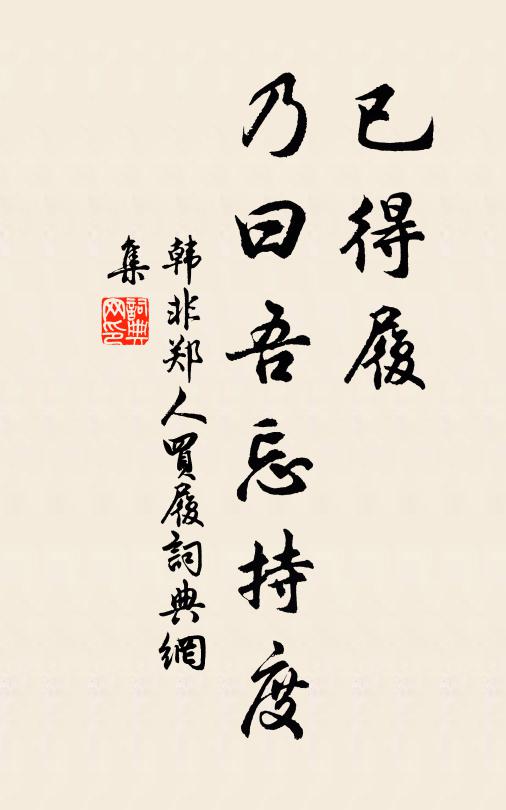 已得履
乃曰吾忘持度
韩非郑人買履詞典網
集
詞典网印